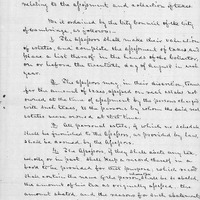 relating to the assessment and collection of taxes.
Be it ordained by the City Council of the City
of Cambridge, as follows:
1. The Assessors shall make their valuation
of estates, and complete the assessment of taxes and
place a list thereof in the hands of the Collector,
on or before the twentieth day of August in each
year.
2. The Assessors may in their discretion, tax
for the amount of taxes assessed on real estate not
owned at the time of assessment by the persons charged
with such taxes, to the persons by whom the said real
estates were owned at that time.
3. All personal estate, of which no schedule
shall be furnished to the Assessors, as provided by law
shall be doomed by the Assessors.
The Assessors, if they shall abate any tax
whole or in part shall keep a record thereof, in a
book to be provided for that purpose, which record
shall contain the name of the person
the amount of his tax as originally assessed, the
amount abated and the reasons for such abatement